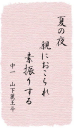 夏の夜
親におこられ
素振りする
中一 山下菓王斗